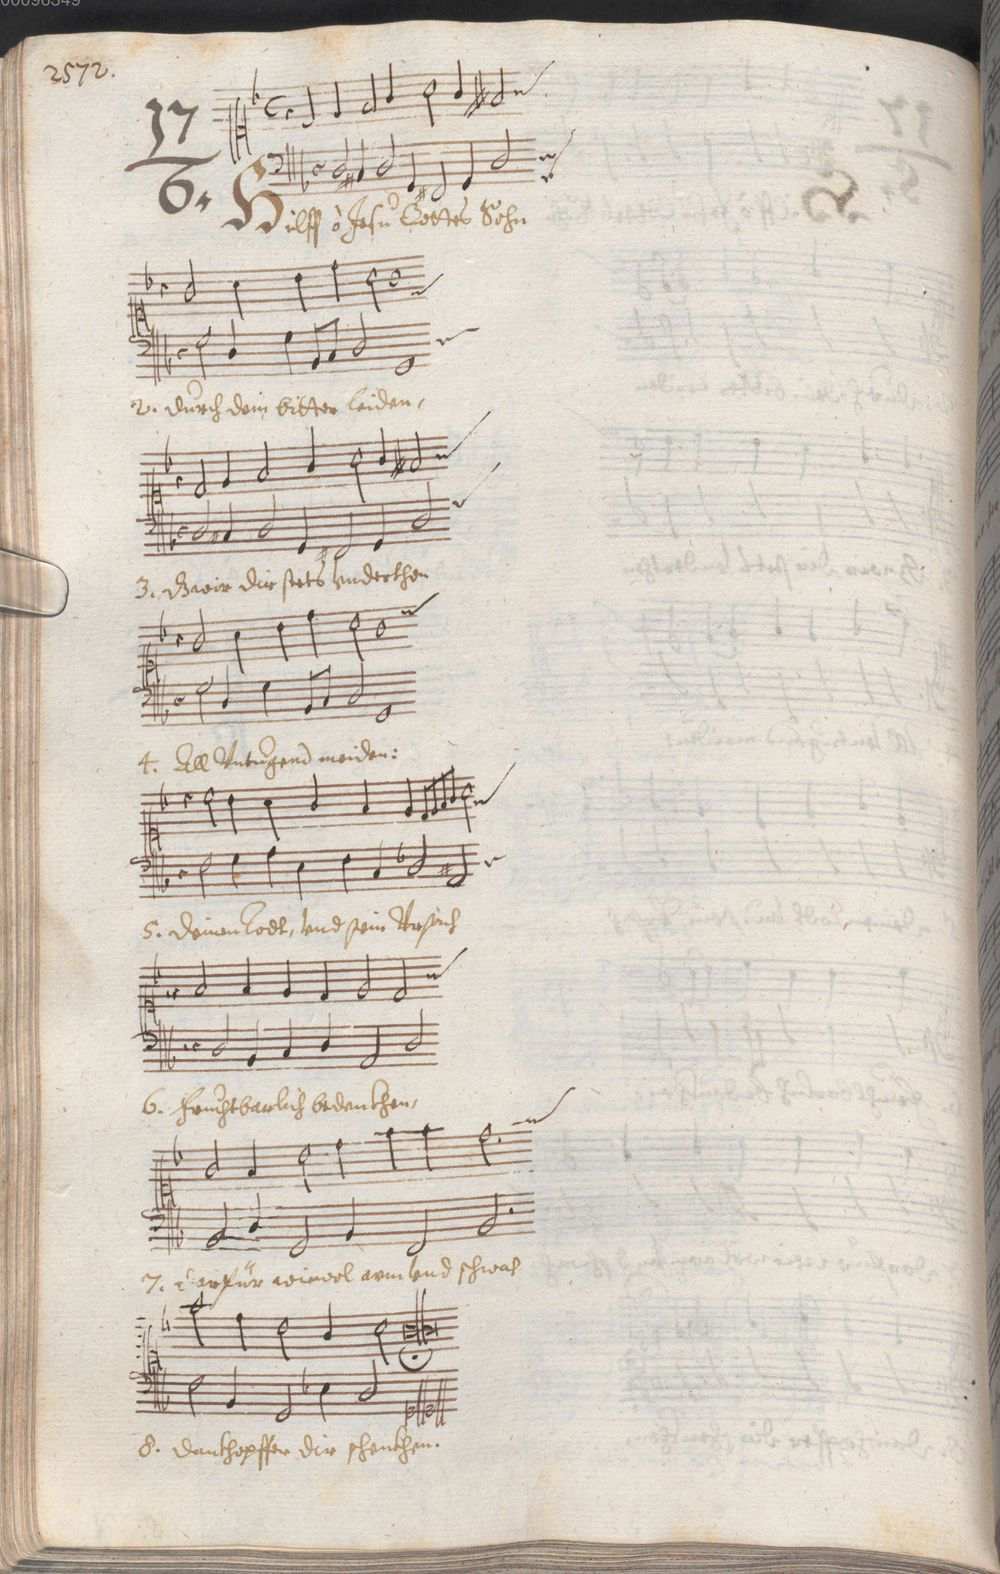 00096349
2572.
17
6.
Hilff ò Jesu Gottes Sohn
2. durch dein bitter leiden,
3. daß wir dir stets underthon
4. All Untugend meiden:
5. deinen Todt, und sein Ursach
6. fruchtbarlich bedenckhen,
7. darfür wiewol arm und schwach
8. danckhopffer dir schenckhen.